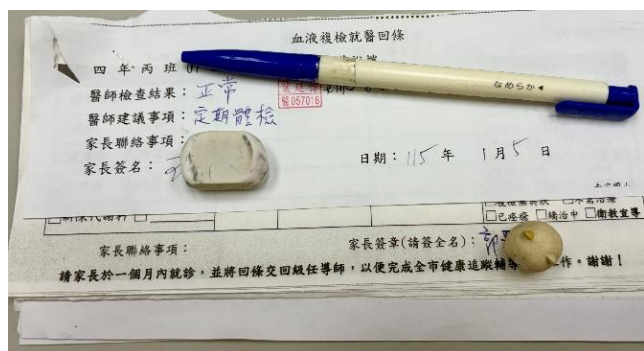 血液複檢就醫回條
四年丙班 01
醫師檢查結果：正常
醫057016
醫師建議事項：定期體檢
なめらか
家長聯絡事項：
家長簽名：
日期：115年 1月5日
□已痊癒 □矯治中 □衛教宣導
家長聯絡事項：
家長簽章(請簽全名)：
請家長於一個月內就診，並將回條交回級任導師，以便完成全市健康追蹤輔導 作。謝謝！